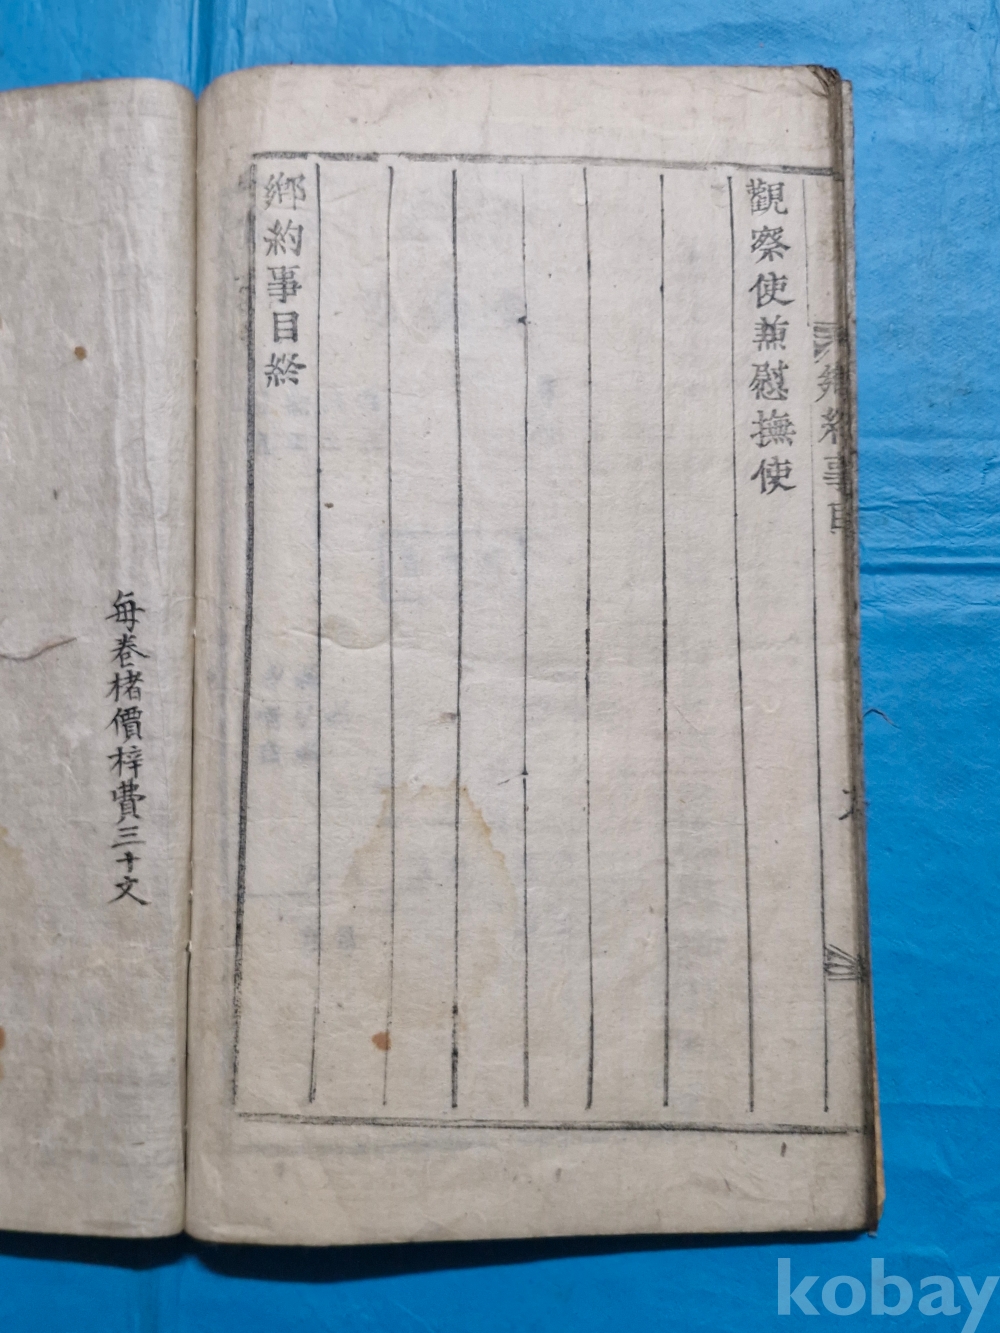 鄕約事目
觀察使兼慰撫使
鄕約事目終
每卷楮價梓費三十文
kobay